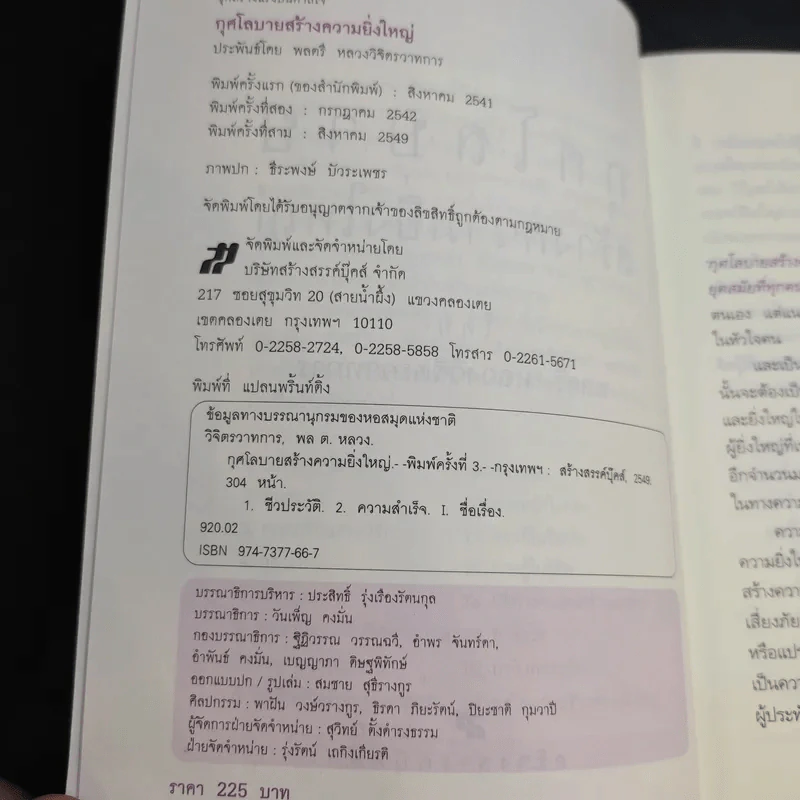 กุศโลบายสร้างความยิ่งใหญ่
ประพันธ์โดย พลตรี หลวงวิจิตรวาทการ
พิมพ์ครั้งแรก (ของสำนักพิมพ์) : สิงหาคม 2541
พิมพ์ครั้งที่สอง : กรกฎาคม 2542
พิมพ์ครั้งที่สาม : สิงหาคม 2549
ภาพปก : ธีระพงษ์ บัวระเพชร
จัดพิมพ์โดยได้รับอนุญาตจากเจ้าของลิขสิทธิ์ถูกต้องตามกฎหมาย
จัดพิมพ์และจัดจำหน่ายโดย
บริษัทสร้างสรรค์บุ๊คส์ จำกัด
217 ซอยสุขุมวิท 20 (สายน้ำผึ้ง) แขวงคลองเตย
เขตคลองเตย กรุงเทพฯ 10110
โทรศัพท์ 0-2258-2724, 0-2258-5858 โทรสาร 0-2261-5671
พิมพ์ที่ แปลนพริ้นท์ติ้ง
ข้อมูลทางบรรณานุกรมของหอสมุดแห่งชาติ
วิจิตรวาทการ, พล ต. หลวง.
กุศโลบายสร้างความยิ่งใหญ่.- -พิมพ์ครั้งที่ 3.- -กรุงเทพฯ : สร้างสรรค์บุ๊คส์, 2549.
304 หน้า.
1. ชีวประวัติ. 2. ความสำเร็จ. I. ชื่อเรื่อง.
920.02
ISBN 974-7377-66-7
บรรณาธิการบริหาร : ประสิทธิ์ รุ่งเรืองรัตนกุล
บรรณาธิการ : วันเพ็ญ คงมั่น
กองบรรณาธิการ : ฐิฏิวรรณ วรรณฉวี, อำพร จันทร์ดา,
อำพันธ์ คงมั่น, เบญญาภา ดิษฐพิทักษ์
ออกแบบปก / รูปเล่ม : สมชาย สุธีรางกูร
ศิลปกรรม : พาฝัน วงษ์วรางกูร, ธิรดา ภิยะรัตน์, ปิยะชาติ กุมวาปี
ผู้จัดการฝ่ายจัดจำหน่าย : สุวิทย์ ตั้งดำรงธรรม
ฝ่ายจัดจำหน่าย : รุ่งรัตน์ เถกิงเกียรติ
ราคา 225 บาท
กุศโลบายสร้าง
ยุคสมัยที่ทุกคน
ตนเอง แต่แน
ในหัวใจคน
และเป็น
นั้นจะต้องเป็น
และยิ่งใหญ่ใ
ผู้ยิ่งใหญ่ที่เ
อีกจำนวนม
ในทางความ
ความ
ความยิ่งให
สร้างควา
เสี่ยงภัย
หรือแปร
เป็นควา
ผู้ประพั